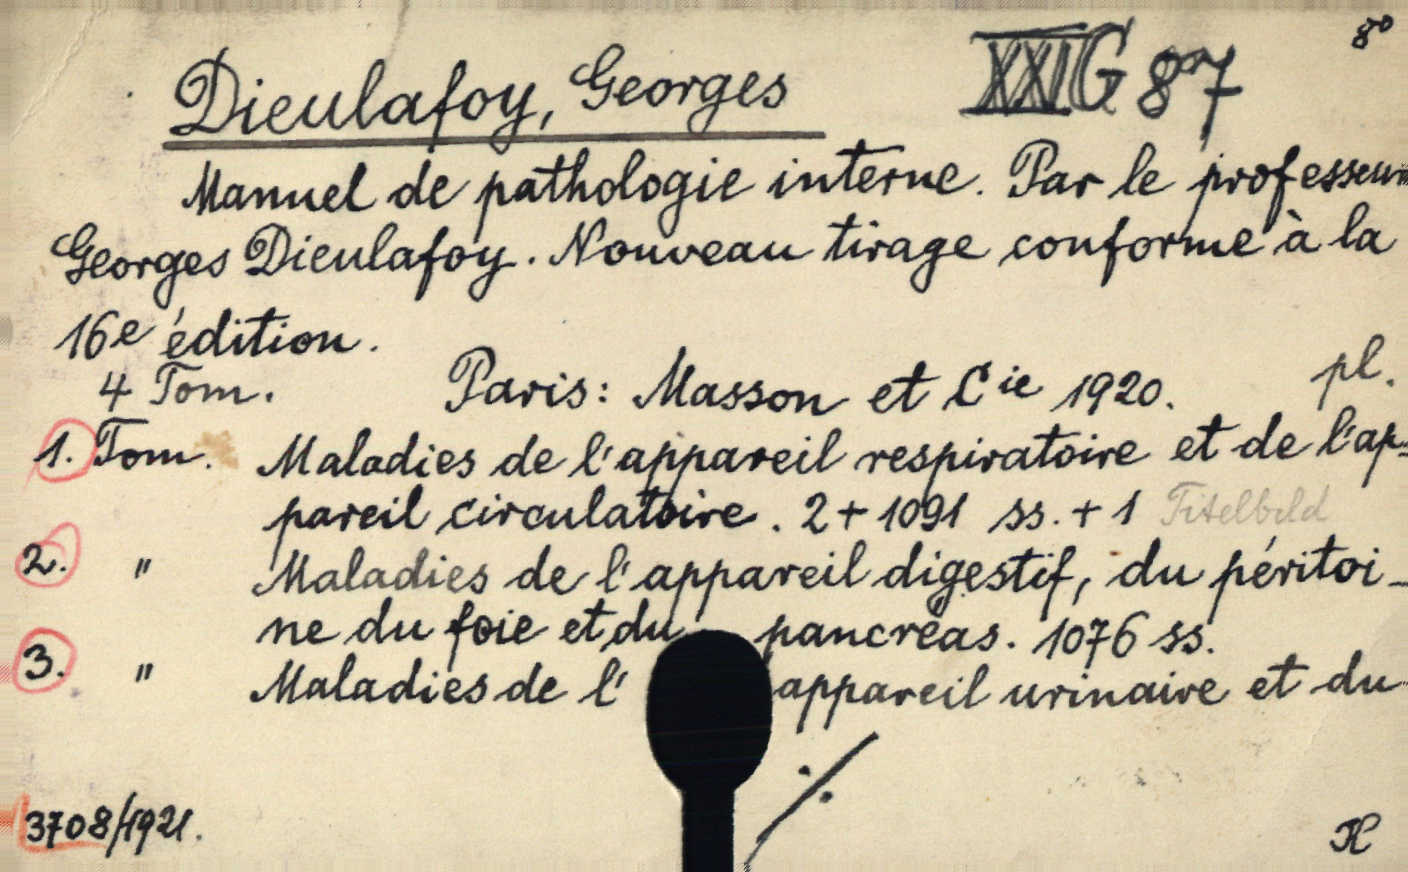 8°
Dieulafoy, Georges XXI G 87
Manuel de pathologie interne. Par le professeur
Georges Dieulafoy. Nouveau tirage conforme à la
16e édition.
4 Tom. Paris: Masson et Cie 1920. pl.
1. Tom. Maladies de l'appareil respiratoire et de l'ap=
pareil circulatoire. 2+1091 ss. + 1 Titelbild
2. " Maladies de l'appareil digestif, du péritoi-
ne du foie et du pancréas. 1076 ss.
3. " Maladies de l'appareil urinaire et du
./.
3708/1921. K